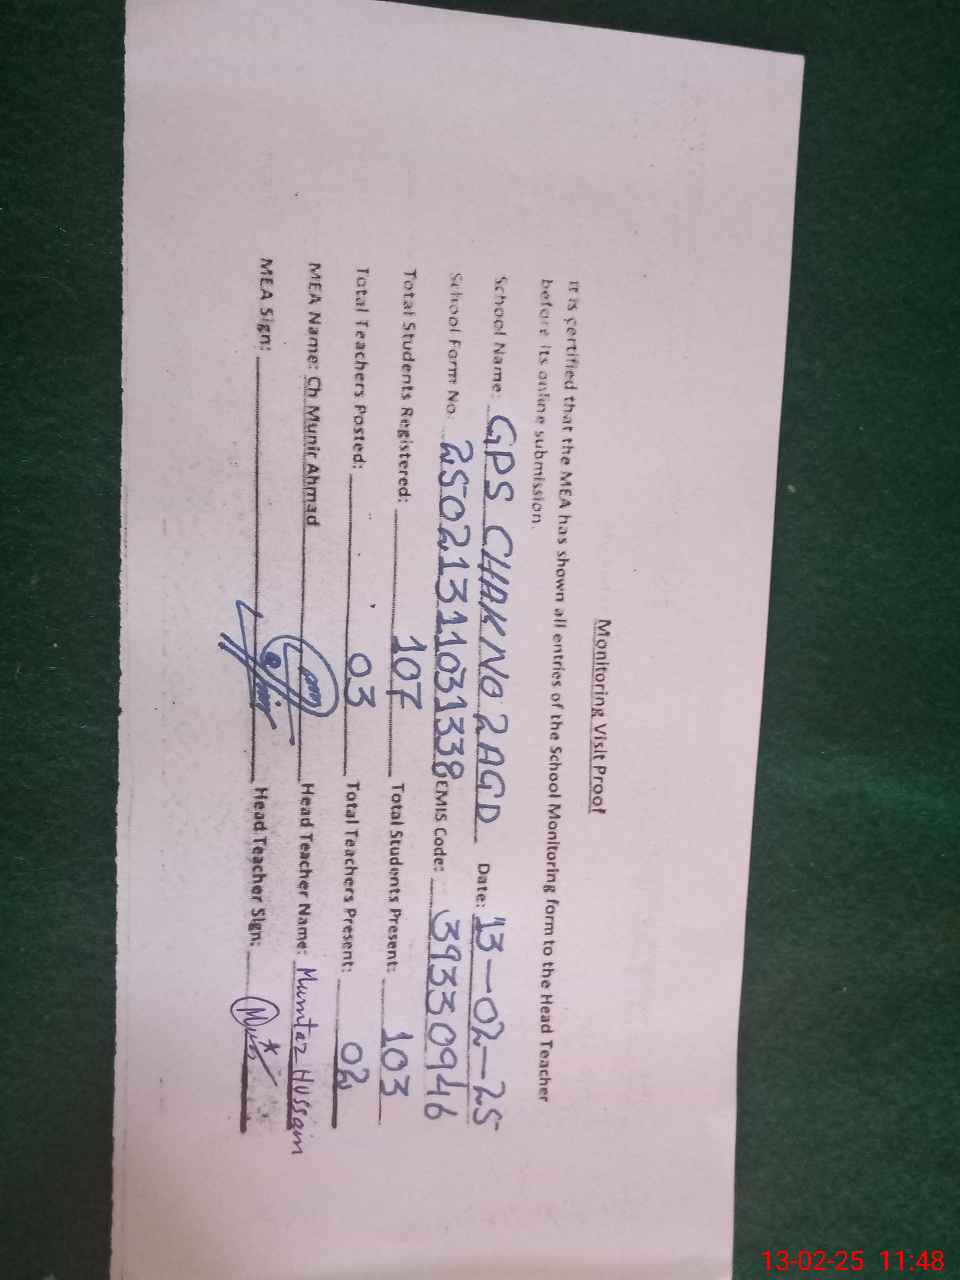 Monitoring Visit Proof
It is certified that the MEA has shown all entries of the School Monitoring form to the Head Teacher
before its online submission.
School Name: GPS CHAK NO 2 AGD Date: 13-02-25
School Form No: 2502131031338 EMIS Code: 39330946
Total Students Registered: 107 Total Students Present: 103
Total Teachers Posted: 03 Total Teachers Present: 02
MEA Name: Ch Munir Ahmad Head Teacher Name: Mumtaz Hussain
MEA Sign: Head Teacher Sign:
13-02-25 11:48